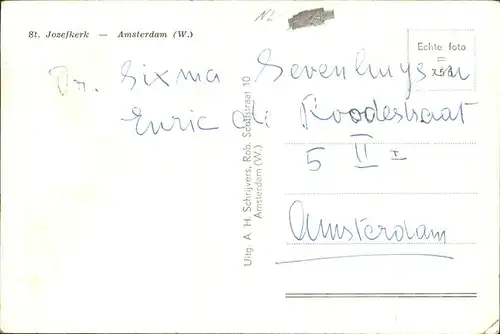 St. Jozefkerk — Amsterdam (W.)
NL
Echte foto
=
Dr. Sixma Sevenhuysen
Enric di Roodestraat
5 II
Amsterdam
Uitg A. H. Schrijvers, Rob. Scottstraat 10
Amsterdam (W.)